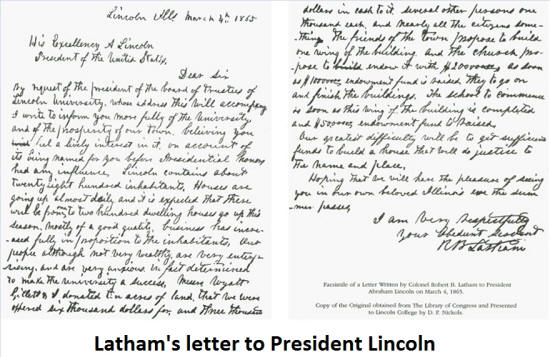 Lincoln Ills March 4th 1865
His Excellency A Lincoln
President of the United States
Dear Sir
By request of the president of the board of trustees of
Lincoln University, whose address this will accompany
I write to inform you more fully of the University
and of the prosperity of our town. beleiving you
feel a lively interest in it, on account of
its being named for you before Presidential honors
had any influence, Lincoln contains about
twenty eight hundred inhabitants, Houses are
going up almost daily, and it is expected that there
will be from to two hundred dwelling houses go up this
season, mostly of a good quality. business has increa-
sed fully in proportion to the inhabitants. Our
people although not very wealthy, are very enterp-
rising, and are very anxious in fact determined
to make the university a success, Messrs Wyatt
Gillett & I donated ten acres of land, that we were
offered six thousand dollars for, and three thousand
dollars in cash to it several other persons one
thousand each, and nearly all the citizens some-
thing The friends of the town propose to build
one wing of the building and the church pro-
pose to endow it with $20000 as soon
as $100000 endowment fund is raised they to go on
and finish the buildings. The school to commence
as soon as this wing of the building is completed
and $50000 endowment fund is raised.
Our greatest difficulty will be to get sufficient
funds to build a house that will do justice to
the name and place,
Hoping that we will have the pleasure of seeing
you in our own beloved Illinois ere the sum-
mer passes,
I am Very Respectfully
Your Obedient Servant
R B Latham
Facsimile of a Letter Written by Colonel Robert B. Latham to President
Abraham Lincoln on March 4, 1865.
Copy of the Original obtained from The Library of Congress and Presented
to Lincoln College by D. F. Nickols.
Latham's letter to President Lincoln